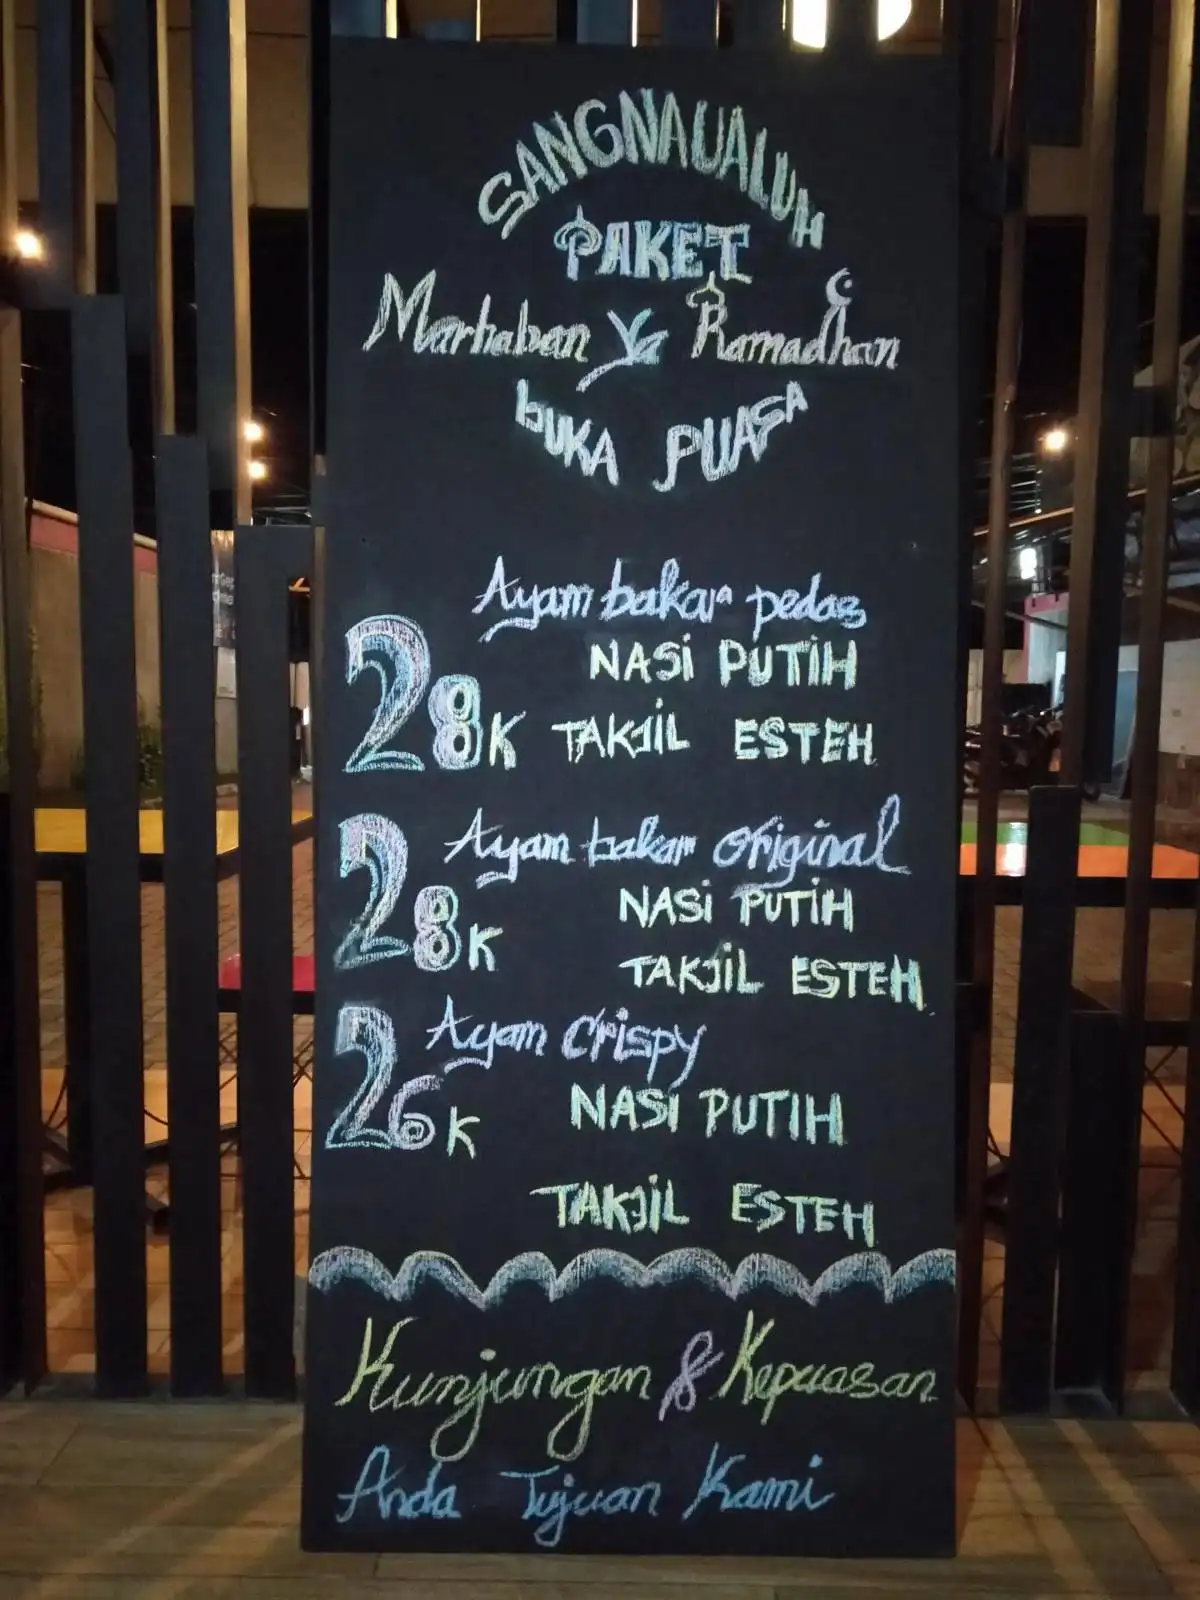 SANGNAUALUH
PAKET
Marhaban Ya Ramadhan
BUKA PUASA
Ayam bakar pedas
NASI PUTIH
28K TAKJIL ESTEH
Ayam bakar original
28K NASI PUTIH
TAKJIL ESTEH
Ayam Crispy
26K NASI PUTIH
TAKJIL ESTEH
Kunjungan & Kepuasan
Anda Tujuan Kami